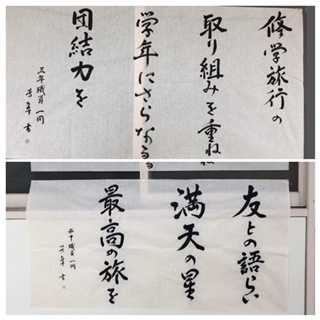 修学旅行の
取り組みを重ね
学年にさらなる
団結力を
三年職員一同
友との語らい
満天の星
最高の旅を
職員一同